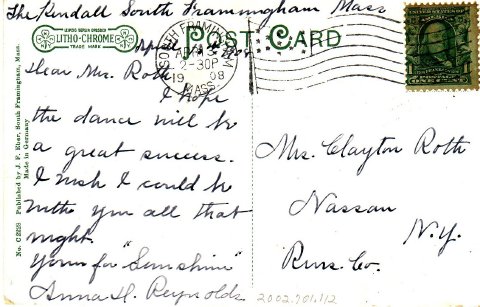 The Kendall South Framingham Mass
LEIPZIG BERLIN DRESDEN
LITHO-CHROME
TRADE MARK
POST CARD
SOUTH FRAMINGHAM
APR
2-30P
1908
MASS.
April
Dear Mrs. Roth
I hope
the dance will be
a great success.
I wish I could be
with you all that
night.
Yours for "Sunshine"
Anna H. Reynolds
Mrs. Clayton Roth
Nassau
N.Y.
Renss. Co.
No. C 2229 Published by J. F. Eber, South Framingham, Mass.
Made in Germany
2002.701.112